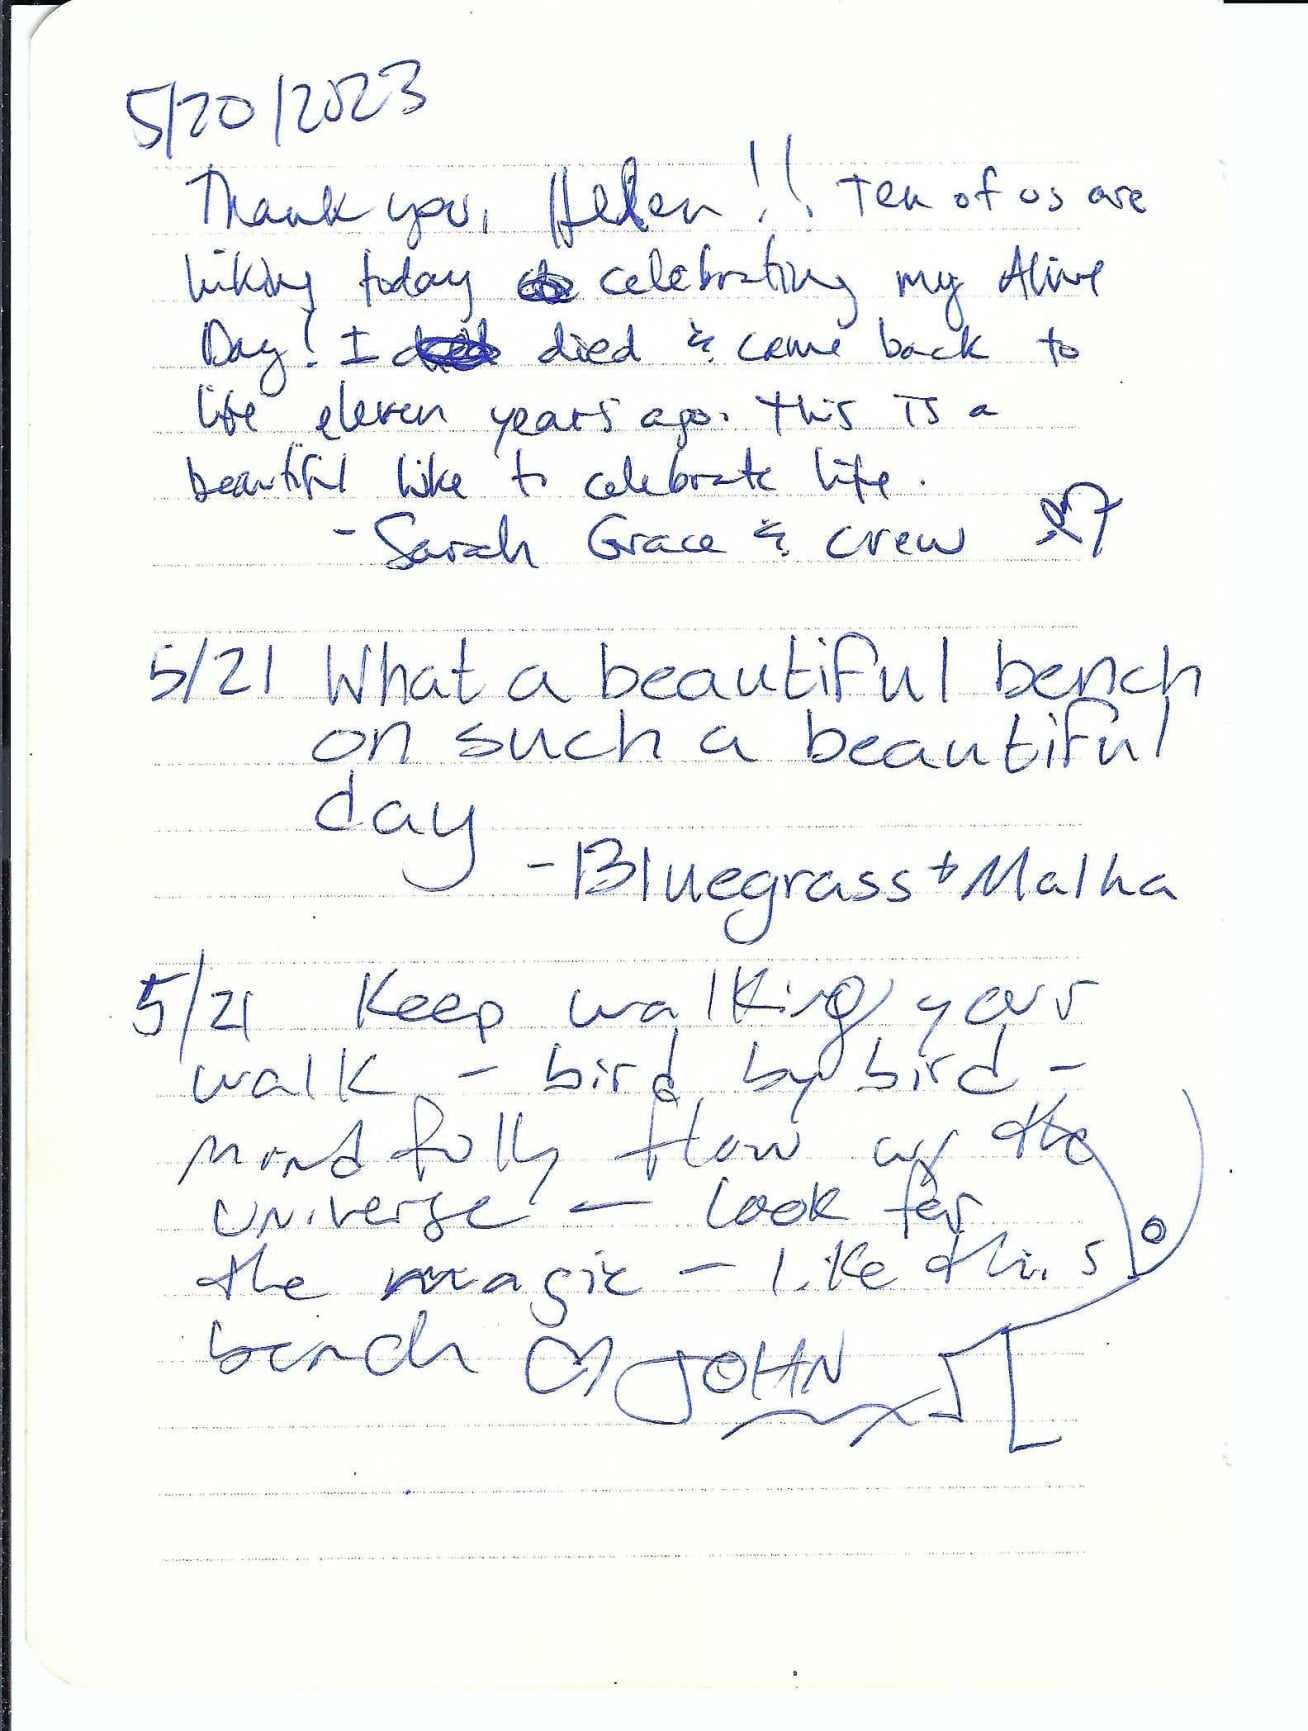 5/20/2023
Thank you, Helen!! Ten of us are
hiking today celebrating my Alive
Day! I died & came back to
life eleven years ago. This is a
beautiful like to celebrate life.
- Sarah Grace & crew
5/21 What a beautiful bench
on such a beautiful
day
- Bluegrass + Malka
5/21 Keep walking your
walk - bird by bird -
mindfully flow as the
universe - look for
the magic - like this
bench ♡ JOHN